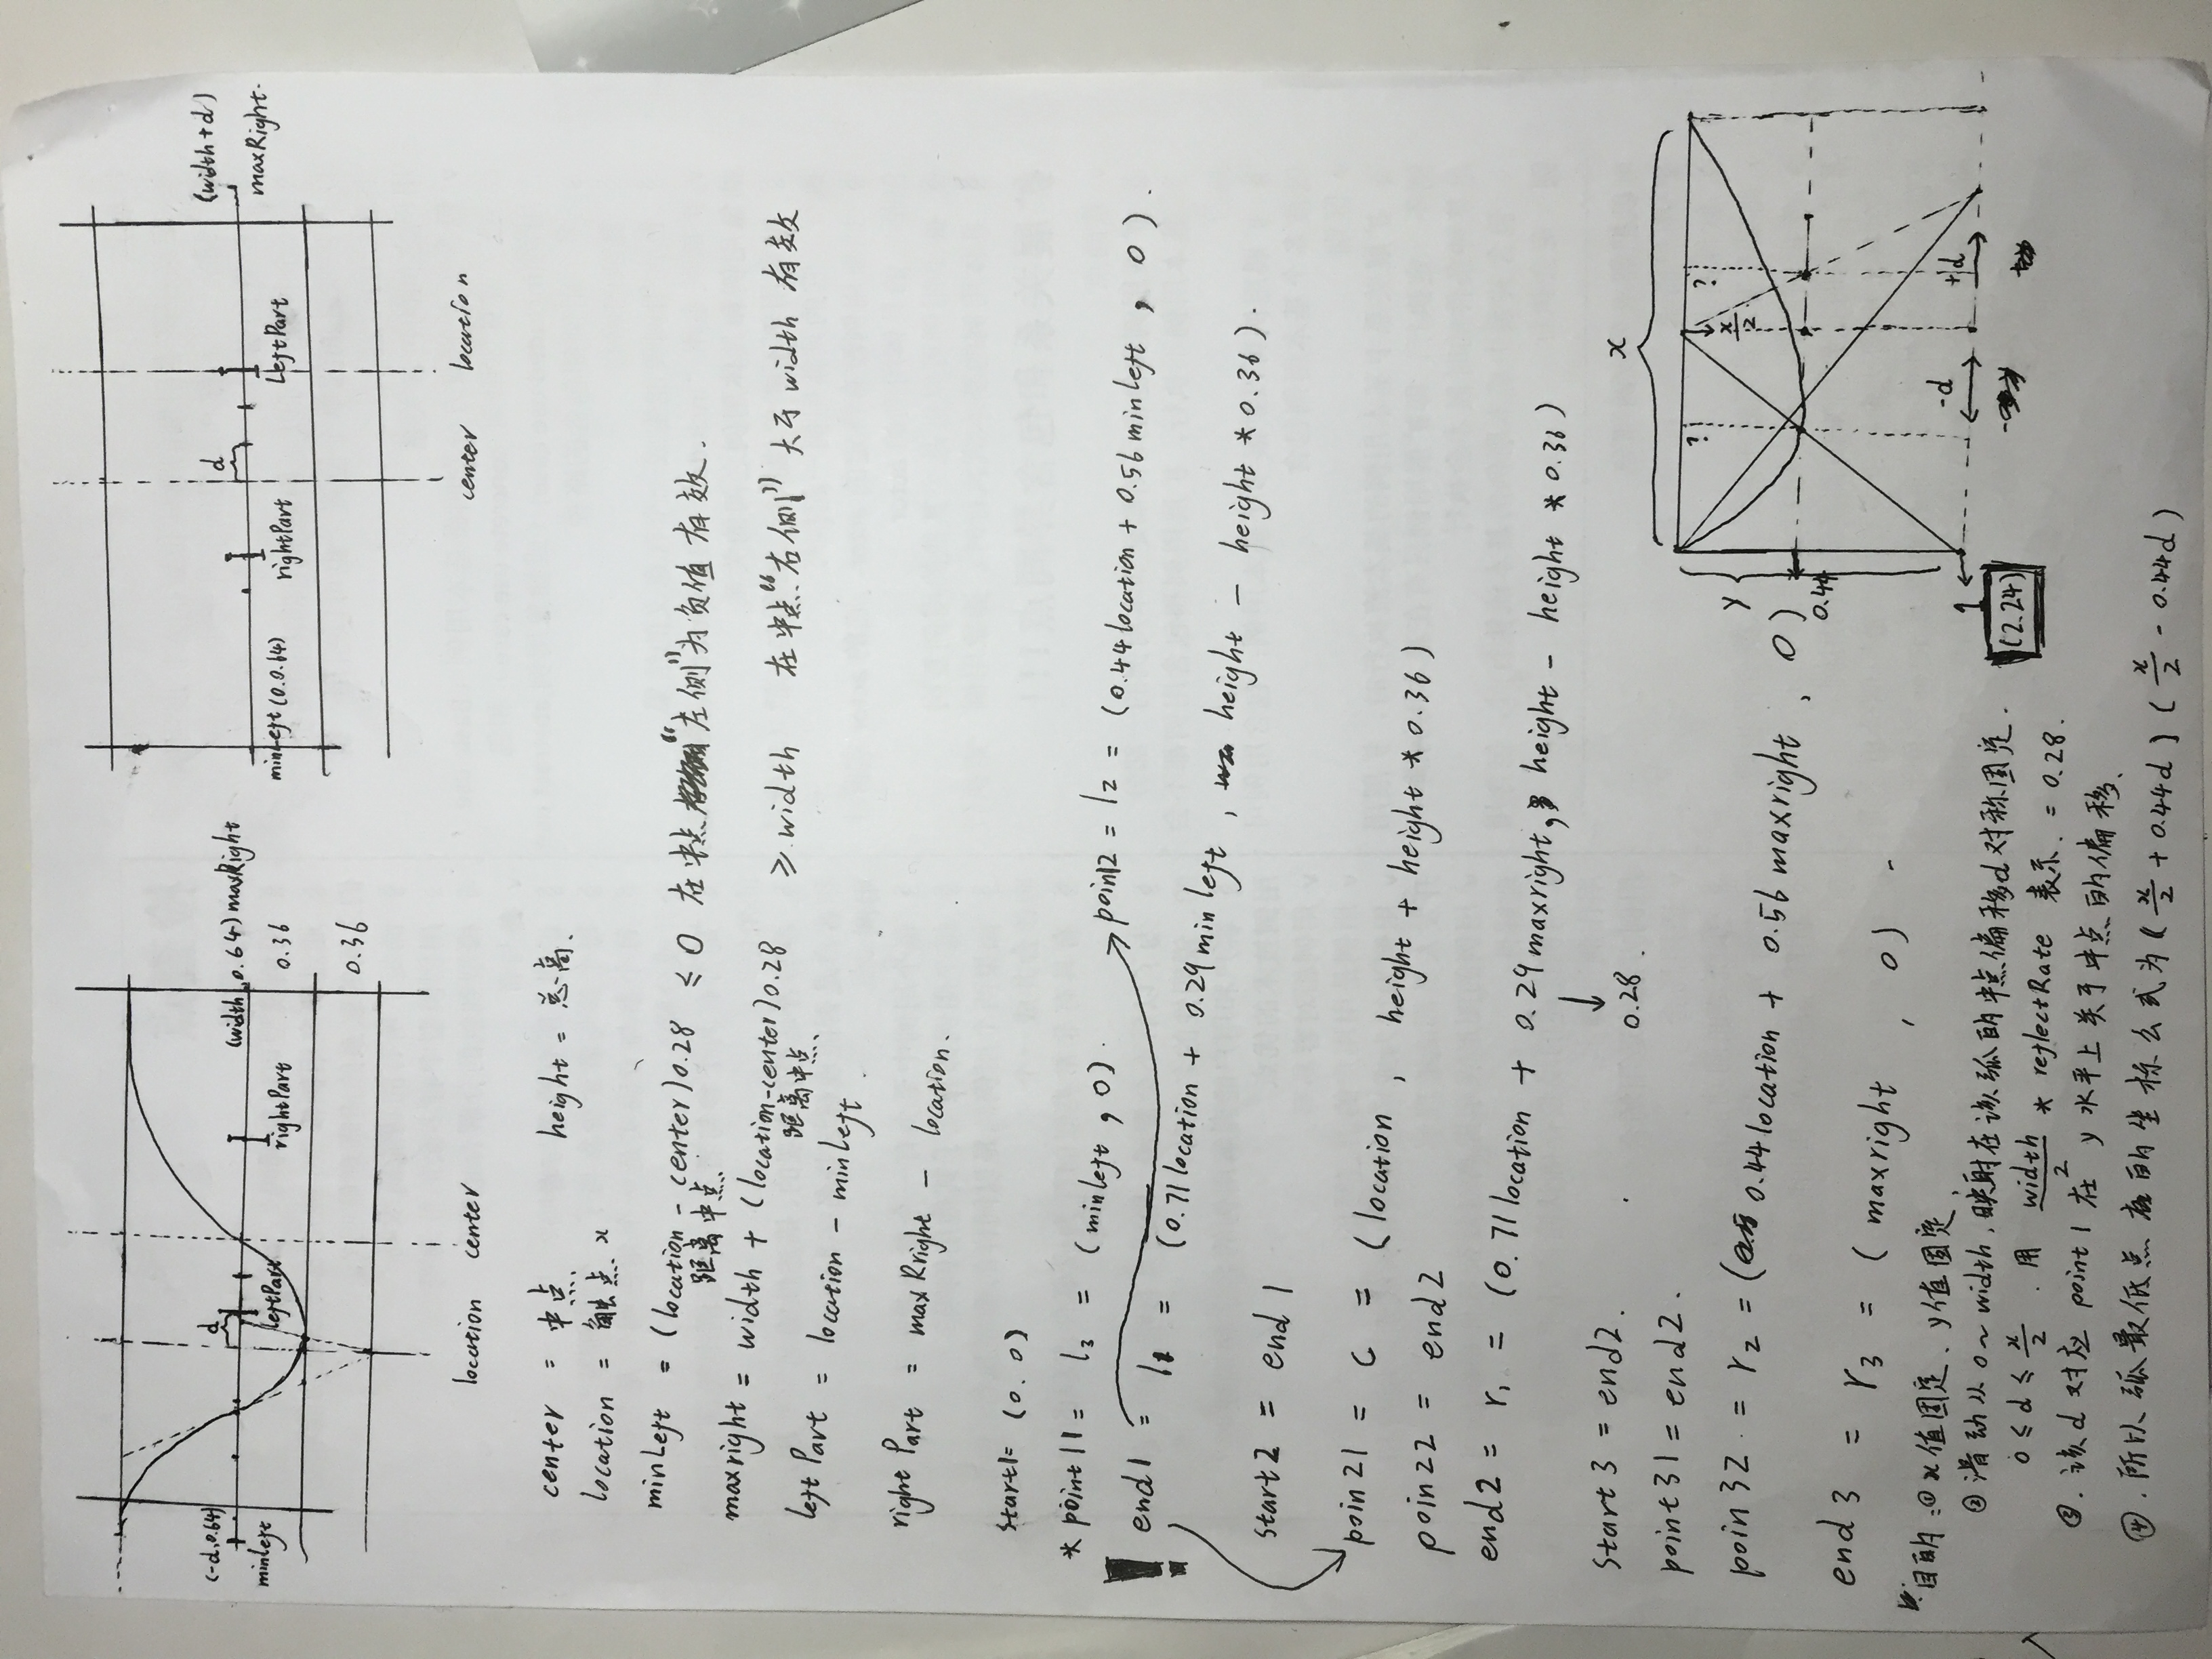 (-d,0.64)
d
(width,0.64) maxRight
minleft
leftPart
rightPart
0.36
0.36
location center
d
(width+d)
maxRight.
minLeft(0.0.64)
rightPart
LeftPart
center location
center = 中点 height = 总高.
location = 触点 x
minLeft = (location - center)0.28 ≤ 0 在中点“左侧”为负值有效.
距离中点
maxright = width + (location-center)0.28 ≥ width 在中点“右侧”大于width有效
距离中点
left Part = location - minLeft.
right Part = maxRright - location.
start1= (0.0)
* point11 = l3 = (minleft, 0).
poin12 = l2 = (0.44location + 0.56minleft, 0).
! end1 = l1 = (0.71location + 0.29minleft, height - height * 0.36).
start2 = end1
poin21 = c = (location, height + height * 0.36)
poin22 = end2
end2 = r1 = (0.71location + 0.29maxright, height - height * 0.36)
0.28.
start3 = end2.
point31 = end2.
poin32 = r2 = (0.44location + 0.56maxright, 0)
end3 = r3 = (maxright, 0)
x
y
?
x/2
?
0.44
-d
+d
1
(2.24)
目的:① x值固定、y值固定,
② 滑动从0~width,映射在该弧的中点偏移d对称固定.
0 ≤ d ≤ x/2 . 用 width/2 * reflectRate 表示. = 0.28.
③. 该d对应 point1 在 y水平上关于中点的偏移.
④. 所以弧最低点的坐标公式为(x/2 + 0.44d)(x/2 - 0.44d)